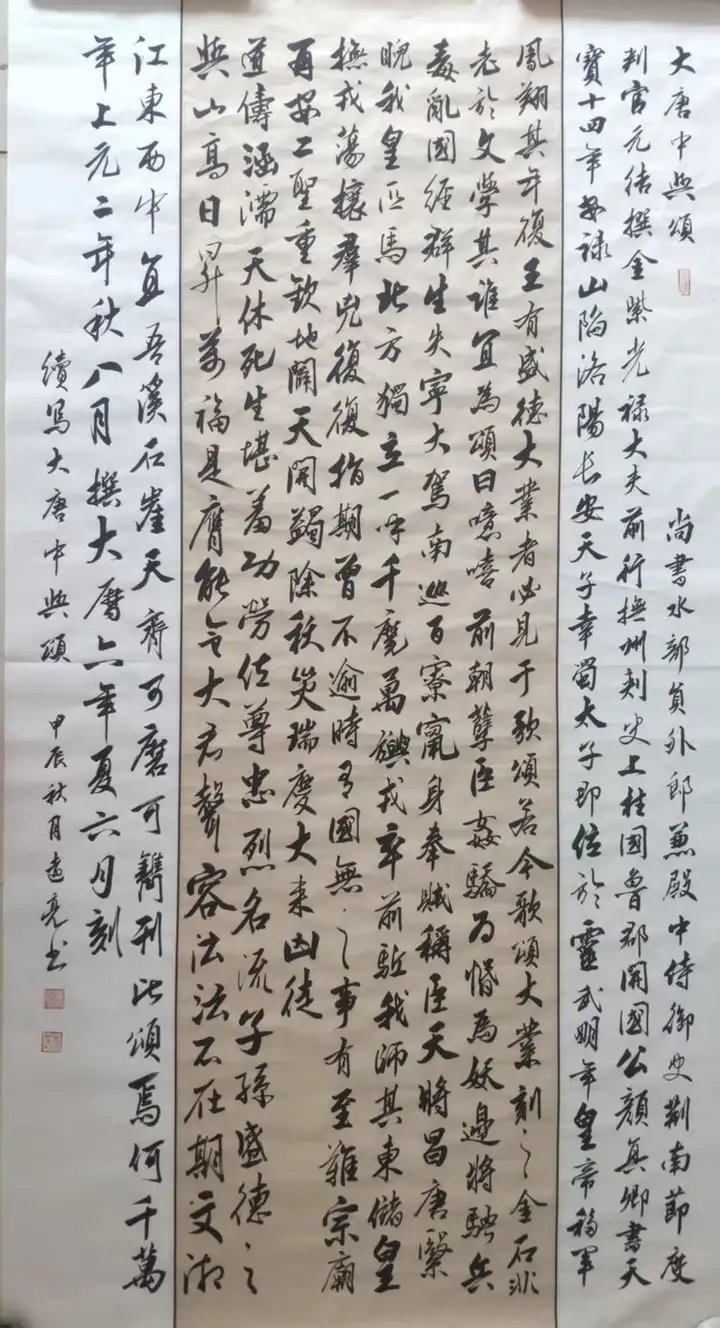 大唐中興頌 尚書水部員外郎兼殿中侍御史荆南節度
判官元結撰金紫光祿大夫前行撫州刺史上柱國魯郡開國公顏真卿書天
寶十四年安祿山陷洛陽長安天子幸蜀太子即位於靈武明年皇帝移軍
鳳翔其年復王有盛德大業者必見于歌頌若今歌頌大業刻之金石非
老於文學其誰宜為頌曰噫嘻前朝孽臣姦驕為惛為妖邊將騁兵
毒亂國經群生失寧大駕南巡百寮竄身奉賊稱臣天將昌唐繄
睨我皇匹馬北方獨立一呼千麾萬旟戎卒前駈我師其東儲皇
撫戎蕩攘羣兇復復指期曾不逾時有國無之事有至難宗廟
再安二聖重歡地闢天開蠲除災瑞慶大来凶徒
逆儔涵濡天休死生堪羞功勞位尊忠烈名流子孫盛德之
與山高日昇萬福是膺能令大君聲容法法不在期文湘
江東西中直吾溪石崖天齊可磨可鐫刊此頌焉何千萬
年上元二年秋八月撰大曆六年夏六月刻
續寫大唐中興頌 甲辰秋月遠亮书